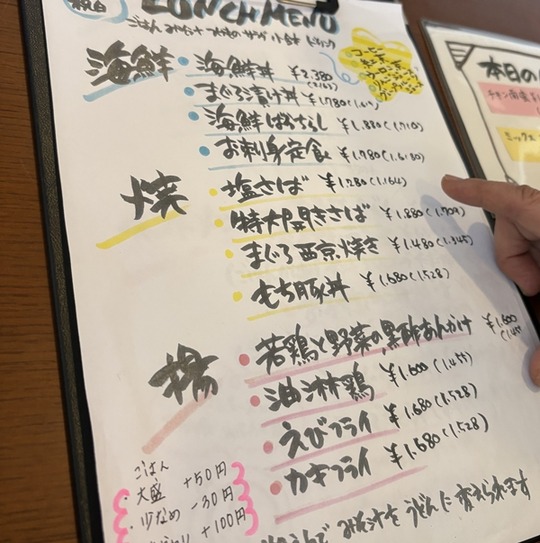 祝日
LUNCH MENU
ごはん みそ汁 サラダ 小鉢 ドリンク
海鮮
海鮮丼 ¥2,380
まぐろ漬け丼 ¥1,780
海鮮ばらちらし ¥1,880(1,710)
お刺身定食 ¥1,780(1,6180)
焼
塩さば ¥1,280(1,164)
特大開きさば ¥1,880(1,709)
まぐろ西京焼き ¥1,480(1,345)
もち豚丼 ¥1,680(1,528)
揚
若鶏と野菜の黒酢あんかけ ¥1,600
油淋鶏 ¥1,600(1,455)
えびフライ ¥1,680(1,528)
カキフライ ¥1,680(1,528)
ごはん
・大盛 +50円
・少なめ -30円
+100円
みそ汁をうどんに変えられます
本日の
チキン南蛮
ミックス